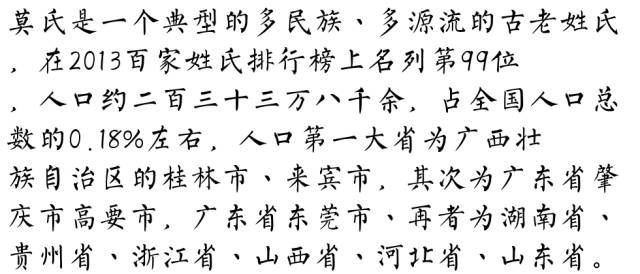 莫氏是一个典型的多民族、多源流的古老姓氏
，在2013百家姓氏排行榜上名列第99位
，人口约二百三十三万八千余，占全国人口总
数的0.18%左右，人口第一大省为广西壮
族自治区的桂林市、来宾市，其次为广东省肇
庆市高要市，广东省东莞市、再者为湖南省、
贵州省、浙江省、山西省、河北省、山东省。